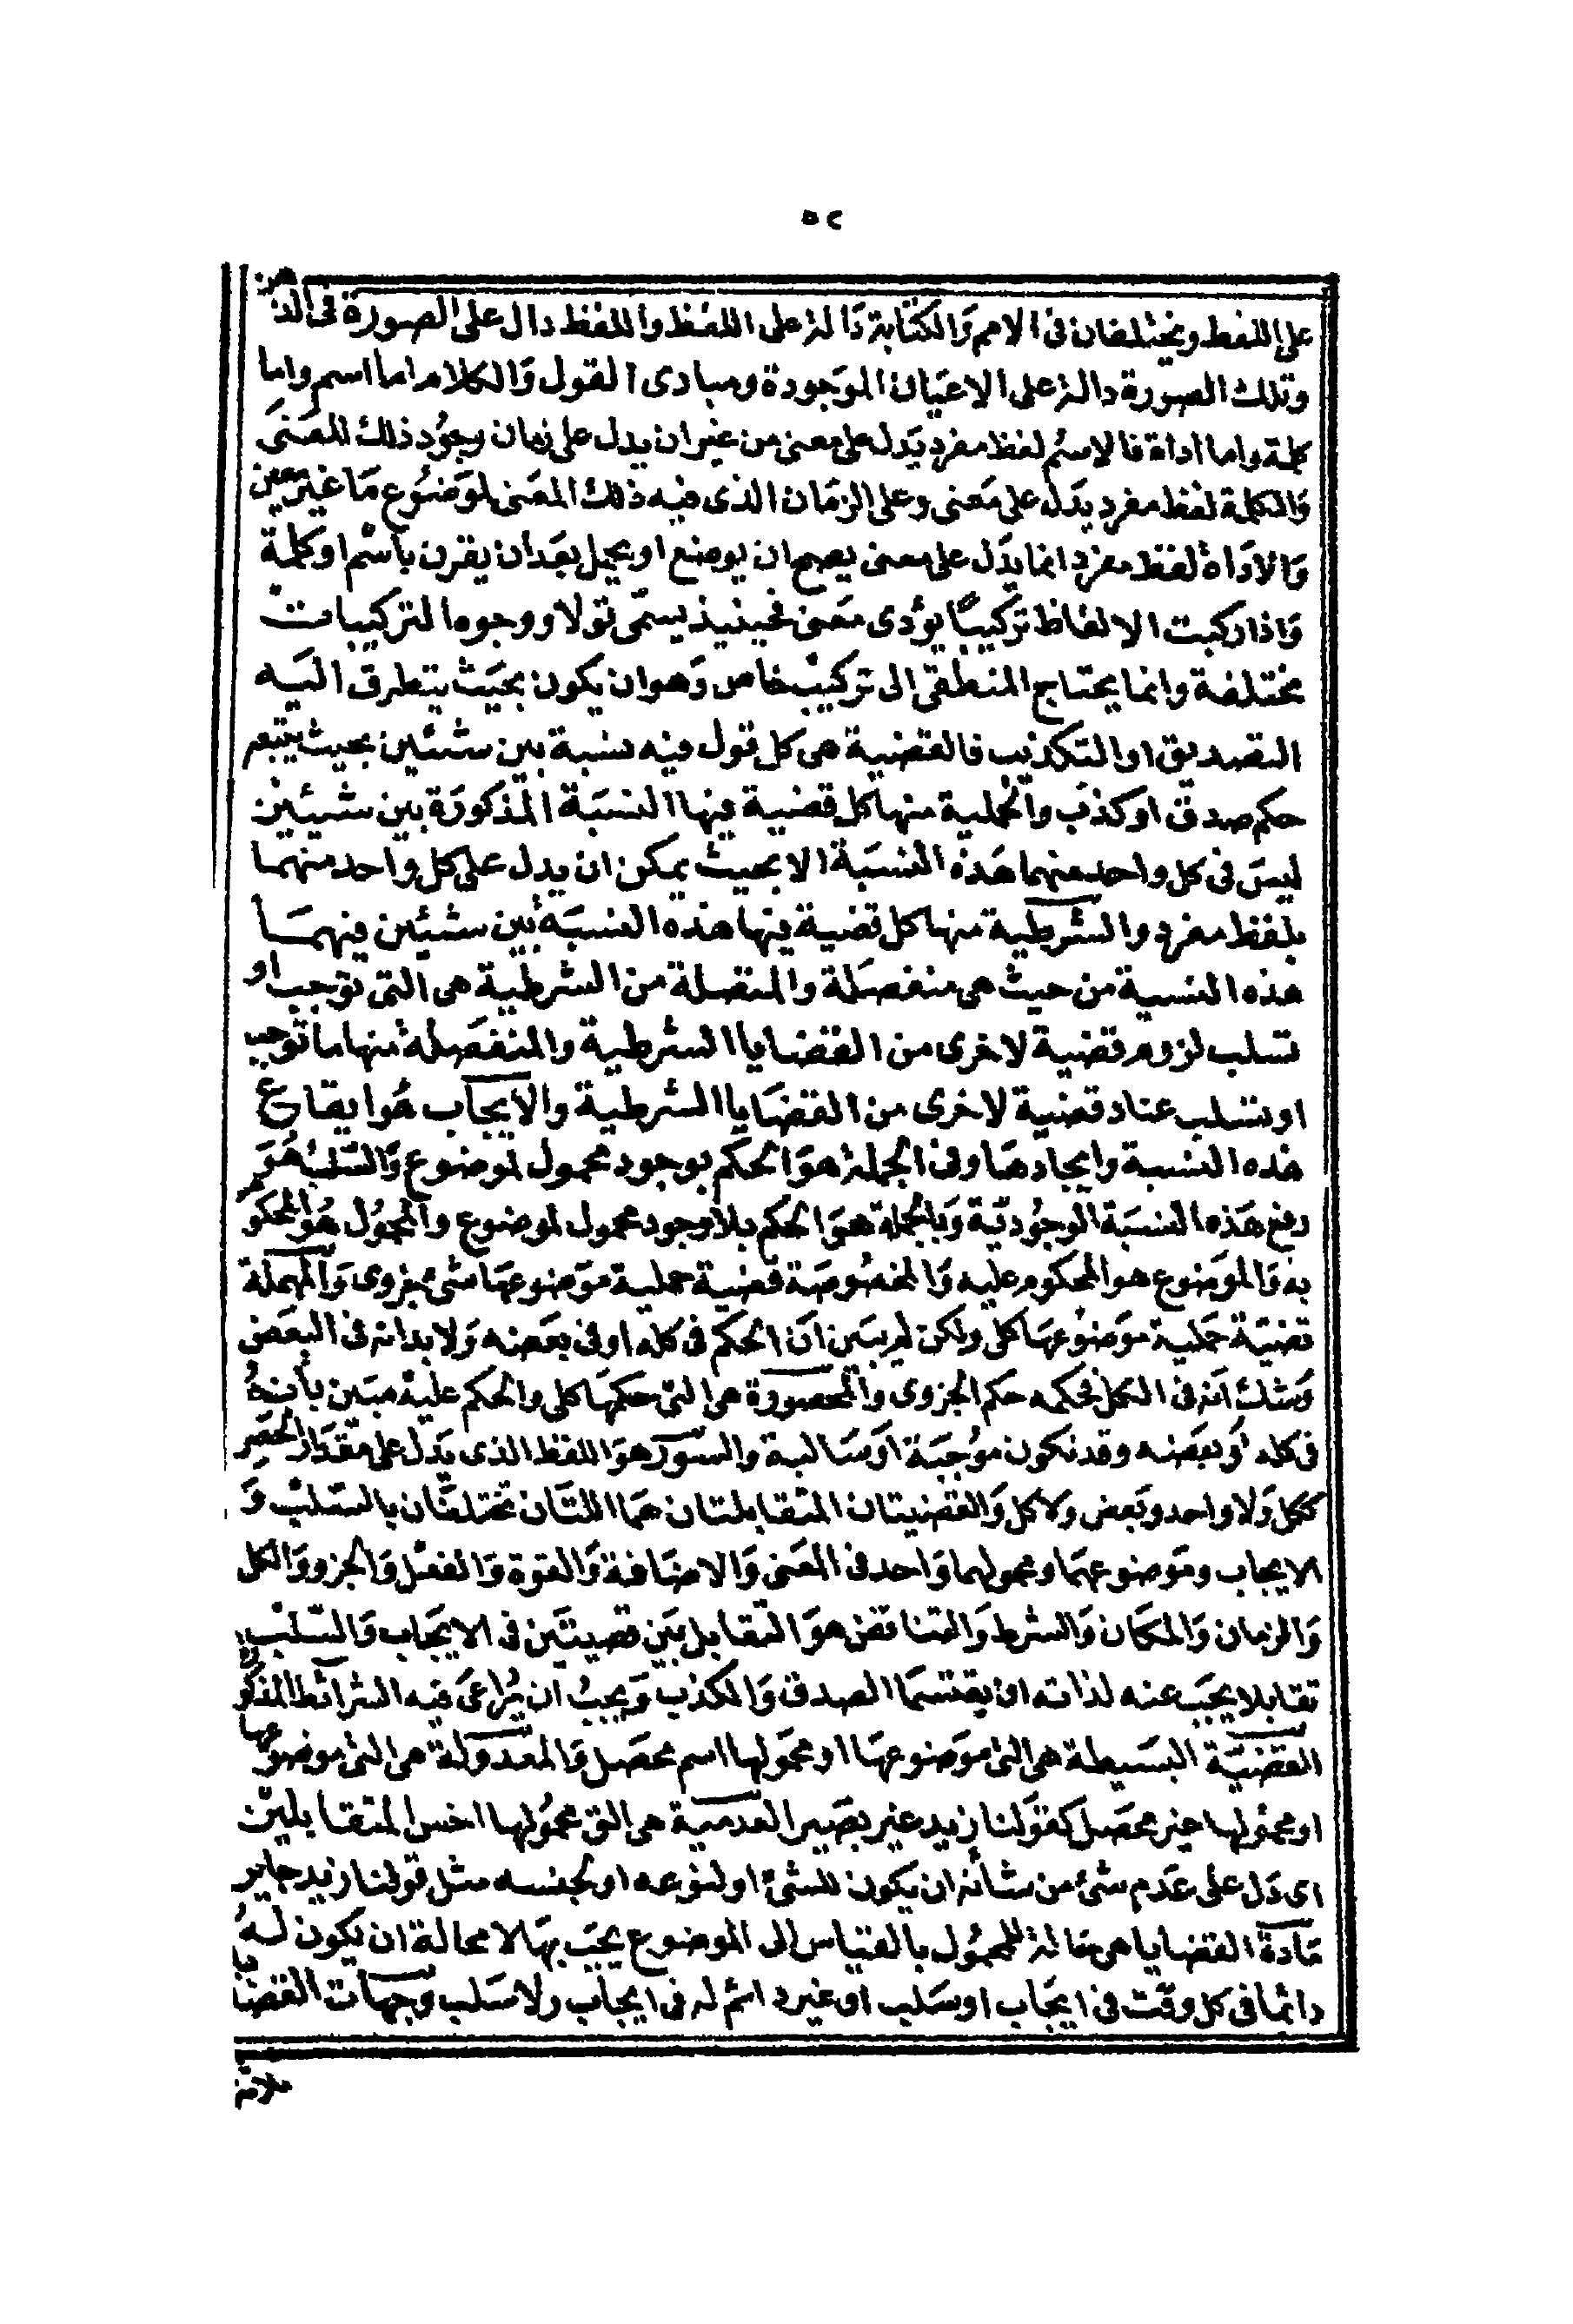 ٥٢
على اللفظ ويختلفان فى الامم والكتابة دالة على اللفظ واللفظ دال على الصورة فى الذهن
وتلك الصورة دالة على الاعيان الموجودة ومبادى القول والكلام اما اسم واما
كلمة واما اداة فالاسم لفظ مفرد يدل على معنى من غير ان يدل على زمان وجود ذلك المعنى
والكلمة لفظ مفرد يدل على معنى وعلى الزمان الذى فيه ذلك المعنى لموضوع ما غير معين
والاداة لفظ مفرد انما يدل على معنى يصح ان يوضع او يحمل بعد ان يقرن باسم او كلمة
واذا ركبت الالفاظ تركيبًا يؤدى معنى فحينيذ يسمّى قولا ووجوه التركيبات
مختلفة وانما يحتاج المنطقى الى تركيب خاص وهو ان يكون بحيث يتطرق اليه
التصديق او التكذيب فالقضية هى كل قول فيه نسبة بين شيئين بحيث يتبعه
حكم صدق او كذب والحملية منها كل قضية فيها النسبة المذكورة بين شيئين
ليس فى كل واحد منهما هذه النسبة الا بحيث يمكن ان يدل على كل واحد منهما
بلفظ مفرد والشرطية منها كل قضية فيها هذه النسبة بين شيئين فيهما
هذه النسبة من حيث هى منفصلة والمتصلة من الشرطية هى التى توجب او
تسلب لزوم قضية لاخرى من القضايا الشرطية والمنفصلة منها ما توجب
او تسلب عناد قضية لاخرى من القضايا الشرطية والايجاب هو ايقاع
هذه النسبة وايجادها وفى الجملة هو الحكم بوجود محمول لموضوع والسلب هو
رفع هذه النسبة الوجودية وبالجملة هو الحكم بلا وجود محمول لموضوع والمحمول هو المحكوم
به والموضوع هو المحكوم عليه والمخصوصة قضية حملية موضوعها شئ جزوى والمهملة
قضية حملية موضوعها كلى ولكن لم يبين ان الحكم فى كله او فى بعضه ولا بد انه فى البعض
وشك انه فى الكل فحكمه حكم الجزوى والمحصورة هى التى حكمها كلى والحكم عليه مبين بأنه
فى كله او بعضه وقد تكون موجبة او سالبة والسور هو اللفظ الذى يدل على مقدار الحصر
ككل ولا واحد وبعض ولا كل والقضيتان المتقابلتان هما اللتان تختلفان بالسلب و
الايجاب وموضوعهما ومحمولهما واحد فى المعنى والاضافة والقوة والفعل والجزو والكل
والزمان والمكان والشرط والتناقض هو التقابل بين قضيتين فى الايجاب والسلب
تقابلا يجب عنه لذاته ان يقتسما الصدق والكذب ويجب ان يراعى فيه الشرائط المذكورة
القضية البسيطة هى التى موضوعها او محمولها اسم محصل والمعدولة هى التى موضوعها
او محمولها غير محصل كقولنا زيد غير بصير العدمية هى التى محمولها اخس المتقابلين
اى دل على عدم شئ من شأنه ان يكون للشئ او لنوعه او لجنسه مثل قولنا زيد جاير
مادة القضايا هى حالة للمحمول بالقياس الى الموضوع يجب بها لا محالة ان يكون له
دائما فى كل وقت فى ايجاب او سلب او غير دائم له فى ايجاب ولا سلب وجهات القضايا
ثلاثة